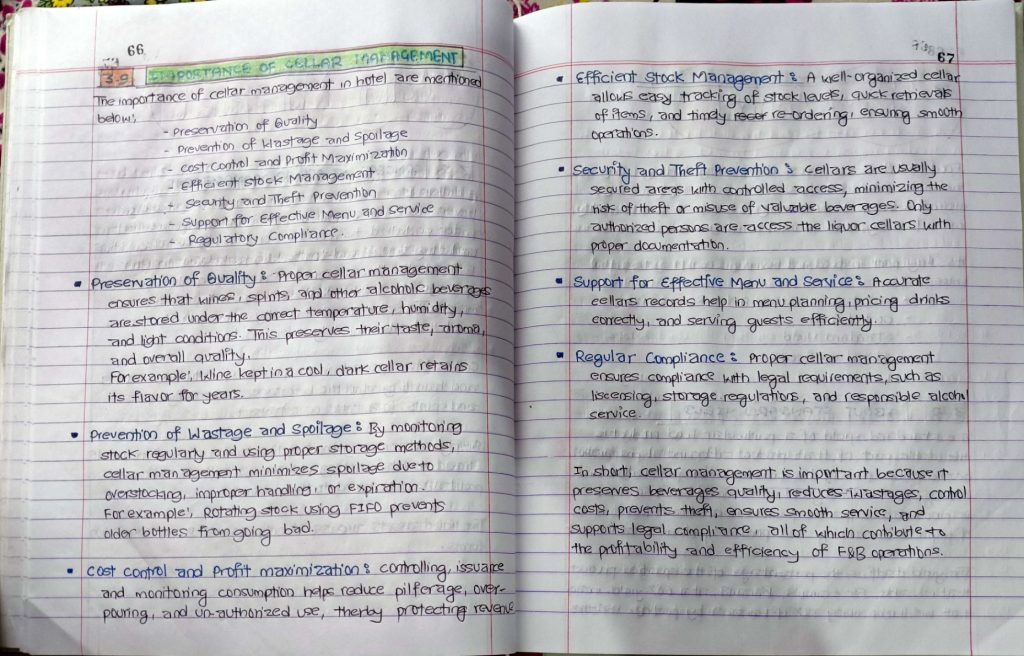 66
3.9 IMPORTANCE OF CELLAR MANAGEMENT
The importance of cellar management in hotel are mentioned
below;
- Preservation of Quality
- Prevention of Wastage and Spoilage
- cost control and Profit Maximization
- Efficient Stock Management
- Security and Theft Prevention
- Support for Effective Menu and Service
- Regulatory Compliance.
• Preservation of Quality : Proper cellar management
ensures that wines, spirits, and other alcoholic beverages
are stored under the correct temperature, humidity,
and light conditions. This preserves their taste, aroma,
and overall quality.
For example; Wine kept in a cool, dark cellar retains
its flavor for years.
• Prevention of Wastage and Spoilage : By monitoring
stock regularly and using proper storage methods,
cellar management minimizes spoilage due to
overstocking, improper handling, or expiration.
For example; Rotating stock using FIFO prevents
older bottles from going bad.
• cost control and Profit maximization : controlling, issuance
and monitoring consumption helps reduce pilferage, over-
pouring, and un-authorized use, therby protecting revenue
67
• Efficient Stock Management : A well-organized cellar
allows easy tracking of stock levels, quick retrievals
of items, and timely re-ordering, ensuring smooth
operations.
• Security and Theft Prevention : Cellars are usually
secured areas with controlled access, minimizing the
risk of theft or misuse of valuable beverages. Only
authorized persons are access the liquor cellars with
proper documentation.
• Support for Effective Menu and Service : Accurate
cellars records help in menu planning, pricing drinks
correctly, and serving guests efficiently.
• Regular Compliance : Proper cellar management
ensures compliance with legal requirements, such as
liscensing, storage regulations, and responsible alcohol
service.
In short, cellar management is important because it
preserves beverages quality, reduces wastages, control
costs, prevents theft, ensures smooth service, and
supports legal compliance, all of which contribute to
the profitability and efficiency of F&B operations.